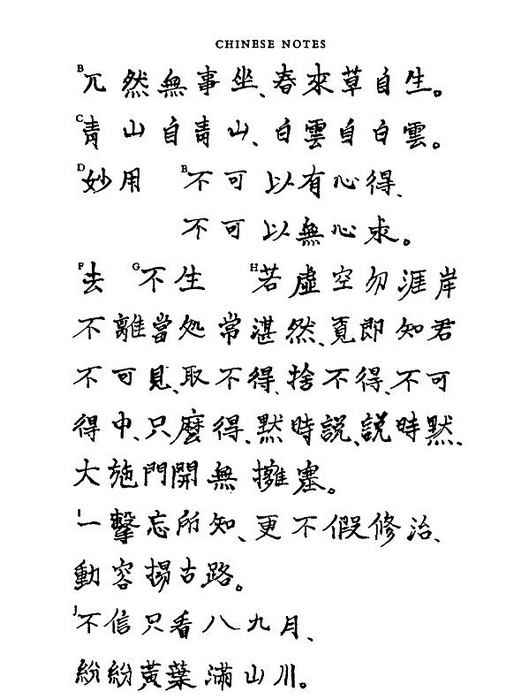 CHINESE NOTES
B兀然無事坐、春來草自生。
C青山自青山、白雲自白雲。
D妙用 B不可以有心得、
不可以無心求。
F去 G不生 H若虛空勿涯岸
不離當処常湛然、覓即知君
不可見、取不得、捨不得、不可
得中、只麼得、黙時説、説時黙、
大施門開無擁塞。
I一擊忘所知、更不假修治、
動容揚古路。
J不信只看八九月、
紛紛黃葉滿山川。